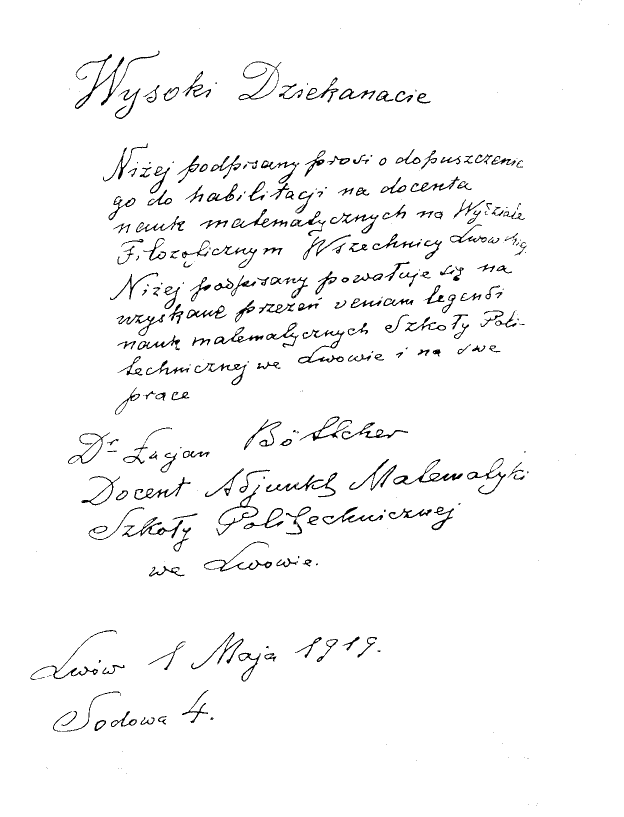 Wysoki Dziekanacie
Niżej podpisany prosi o dopuszczenie
go do habilitacji na docenta
nauk matematycznych na Wydziale
Filozoficznym Wszechnicy Lwowskiej.
Niżej podpisany powołuje się na
uzyskane przezeń veniam legendi
nauk matematycznych Szkoły Poli-
technicznej we Lwowie i na swe
prace
Dr Łucjan Böttcher
Docent Adjunkt Matematyki
Szkoły Politechnicznej
we Lwowie.
Lwów 1 Maja 1919.
Sodowa 4.